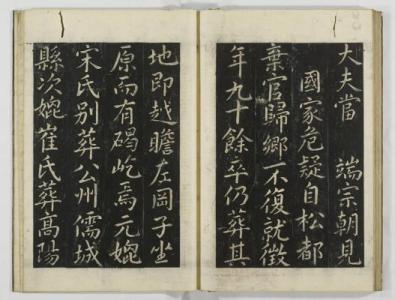 大夫當 端宗朝見
國家危疑自松都
棄官歸鄉不復就徵
年九十餘卒仍葬其
地即越瞻左岡子坐
原而有碣屹焉元媲
宋氏別葬公州儒城
縣次媲崔氏葬高陽